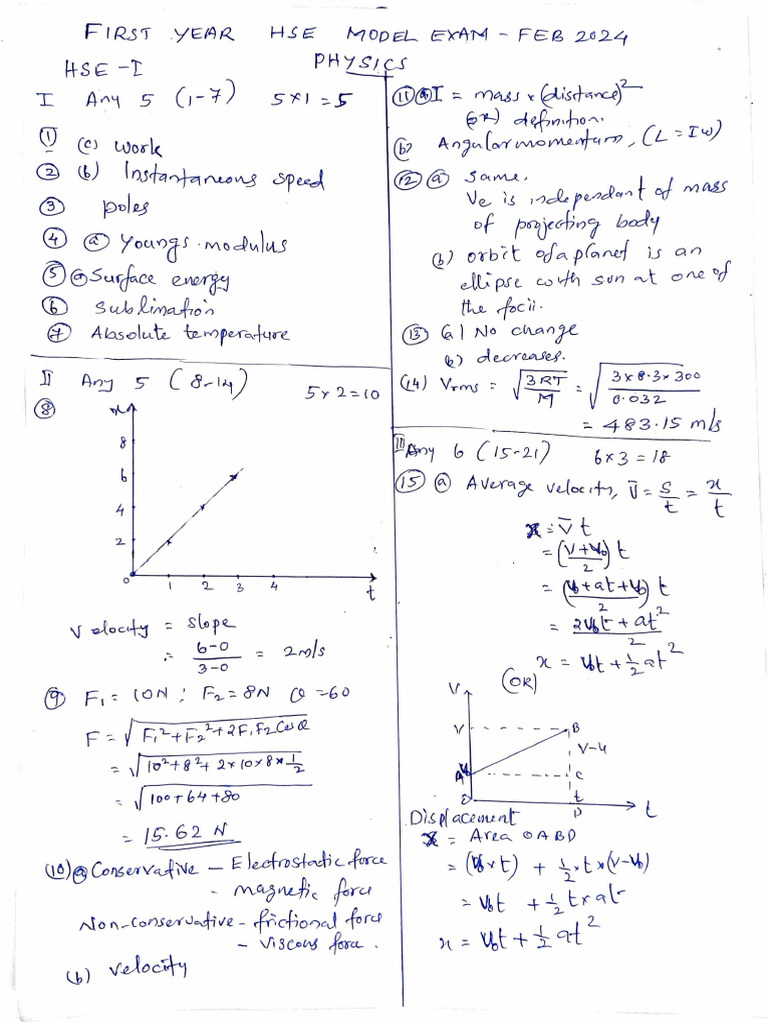 FIRST YEAR HSE MODEL EXAM - FEB 2024
HSE - I PHYSICS
I Any 5 (1-7) 5×1 = 5
① (c) work
② (b) Instantaneous speed
③ poles
④ ⓐ Youngs modulus
⑤ ⓐ Surface energy
⑥ Sublimation
⑦ Absolute temperature
II Any 5 (8-14) 5×2=10
⑧
x
8
6
4
2
0 1 2 3 4 t
Velocity = slope
= 6-0/3-0 = 2m/s
⑨ F₁ = 10N ; F₂ = 8N θ = 60
F = √F₁²+F₂²+2F₁F₂Cosθ
= √10²+8²+2×10×8×1/2
= √100+64+80
= 15.62 N
⑩ ⓐ Conservative – Electrostatic force
– magnetic force
Non-conservative – frictional force
– viscous force.
(b) velocity
⑪ ⓐ I = mass × (distance)²
(or) definition.
(b) Angular momentum, (L = Iω)
⑫ ⓐ same.
Ve is independant of mass
of projecting body
(b) orbit of a planet is an
ellipse with sun at one of
the focii.
⑬ a) No change
(b) decreases.
(14) Vrms = √3RT/M = √3×8.3×300/0.032
= 483.15 m/s
III Any 6 (15-21) 6×3 = 18
⑮ ⓐ Average velocity, v̄ = s/t = x/t
x = v̄ t
= (v+v₀)/2 t
= (v₀+at+v₀)/2 t
= 2v₀t + at²/2
x = v₀t + ½at²
(OR)
V
V B
V-u
A v₀ C
O t D t
Displacement
x = Area OABD
= (v₀×t) + ½×t×(v-v₀)
= v₀t + ½t×at
x = v₀t + ½at²